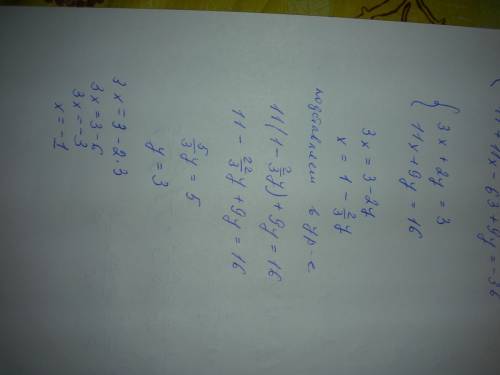 11x - 63 + 9y = -36
{ 3x + 2y = 3
11x + 9y = 16
3x = 3 - 2y
x = 1 - 2/3 y
подставляем в ур-е
11(1 - 2/3 y) + 9y = 16
11 - 22/3 y + 9y = 16
5/3 y = 5
y = 3
3x = 3 - 2·3
3x = 3 - 6
3x = -3
x = -1